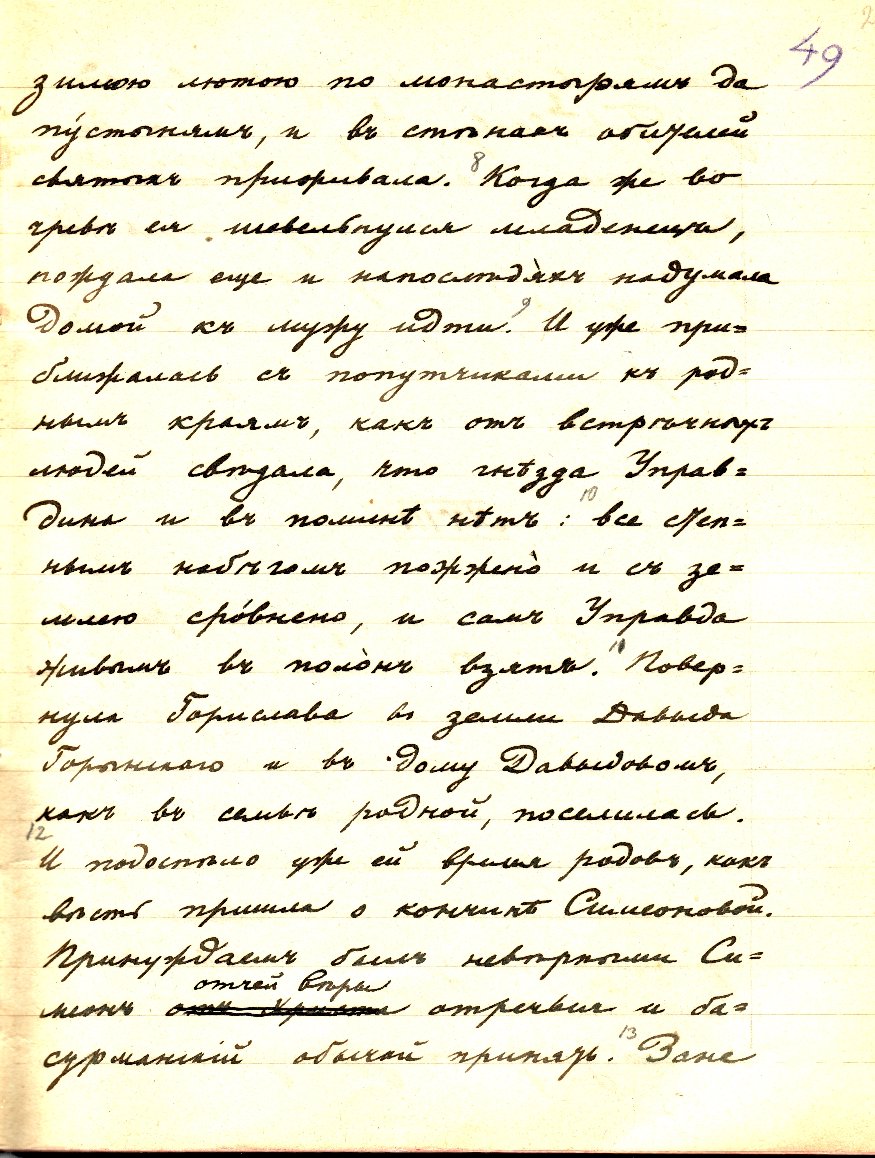 49
зимою лютою по монастырямъ да
пу́стынямъ, и въ стѣнахъ обителей
святыхъ приживала. 8 Когда же во
чревѣ ея шевельнулся младенецъ,
пождала еще и напослѣдя́хъ надумала
домой къ мужу идти. 9 И уже при=
ближалась съ попутчиками къ род=
нымъ краямъ, какъ отъ встрѣчныхъ
людей свѣдала, что гнѣзда Управ=
дина и въ поминѣ нѣтъ: 10 все степ=
нымъ набѣгомъ пожжено̀ и съ зе=
млею сро́внено, и самъ Управда
живымъ въ поло̀нъ взятъ. 11 Повер=
нула Горислава въ земли Давыда
Горынскаго и въ дому Давыдовомъ,
какъ въ семьѣ родной, поселилась.
12 И подоспѣло уже ей время родовъ, какъ
вѣсть пришла о кончинѣ Симеоновой.
Принуждаемъ былъ невѣрными Си=
отчей вѣры
меонъ отъ Христа отречься и ба=
сурманскій обычай принять. 13 Зане